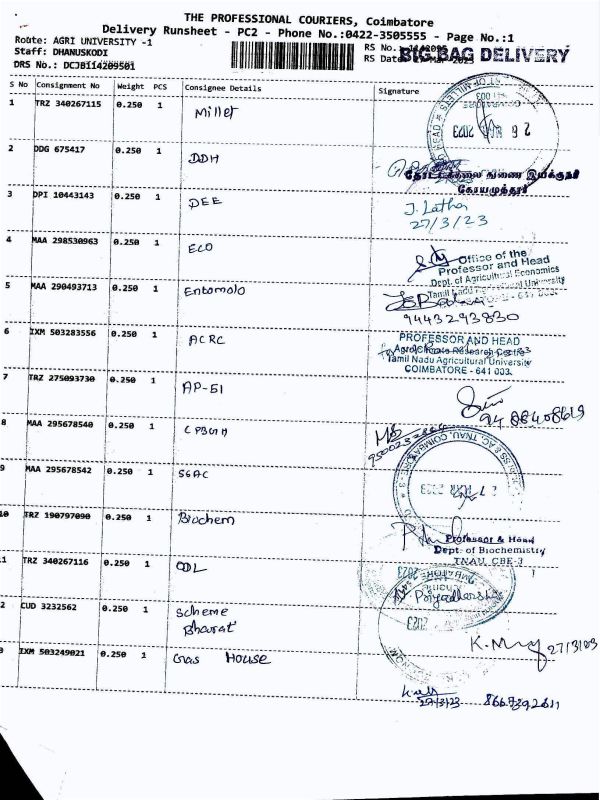 THE PROFESSIONAL COURIERS, Coimbatore
Delivery Runsheet - PC2 - Phone No.:0422-3505555 - Page No.:1
Route: AGRI UNIVERSITY -1
RS No.: 1142095
BIG BAG DELIVERY
Staff: DHANUSKODI
RS Date
DRS No.: DCJB114209501
S No Consignment No Weight PCS Consignee Details Signature
1 TRZ 340267115 0.250 1 Millet
26 MAR 2023
2 DDG 675417 0.250 1 DDH
தோட்டக்கலை துணை இயக்குநர்
கோயமுத்தூர்
3 DPI 10443143 0.250 1 DEE
J. Latha
27/3/23
4 MAA 298530963 0.250 1 ECO
Office of the
Professor and Head
Dept. of Agricultural Economics
Tamil Nadu Agricultural University
5 MAA 290493713 0.250 1 Entomolo
9443293830
6 IXM 503283556 0.250 1 ACRC
PROFESSOR AND HEAD
Agro Climate Research Centre
Tamil Nadu Agricultural University
COIMBATORE - 641 003.
7 TRZ 275093730 0.250 1 AP-51
8 MAA 295678540 0.250 1 CPBGH
9 MAA 295678542 0.250 1 SSAC
27 MAR 2023
10 TRZ 190797090 0.250 1 Biochem
Professor & Head
Dept. of Biochemistry
TNAU, CBE-3
11 TRZ 340267116 0.250 1 ODL
Priyadharshi
12 CUD 3232562 0.250 1 Scheme
Bharat
27/3/23
13 IXM 503249021 0.250 1 Gas House
27/3/23 8667392611